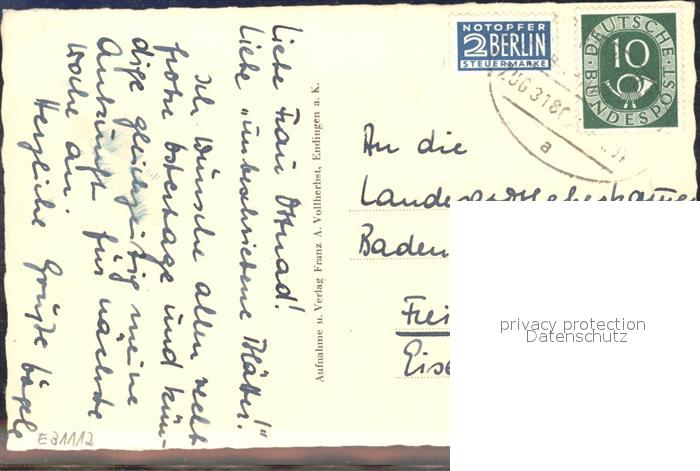 Liebe Frau Ottnad!
Liebe „unbeschriebene Blätter“!
Ich wünsche allen recht
frohe Ostertage und kün-
dige gleichzeitig meine
Ankunft für nächste
Woche an.
Herzliche Grüße
Aufnahme u. Verlag Franz A. Vollherbst, Endingen a. K.
E31112
NOTOPFER
2 BERLIN
STEUERMARKE
DEUTSCHE
BUNDESPOST
10
ZUG 3180
a
An die
Baden
Frei
Eise
privacy protection
Datenschutz